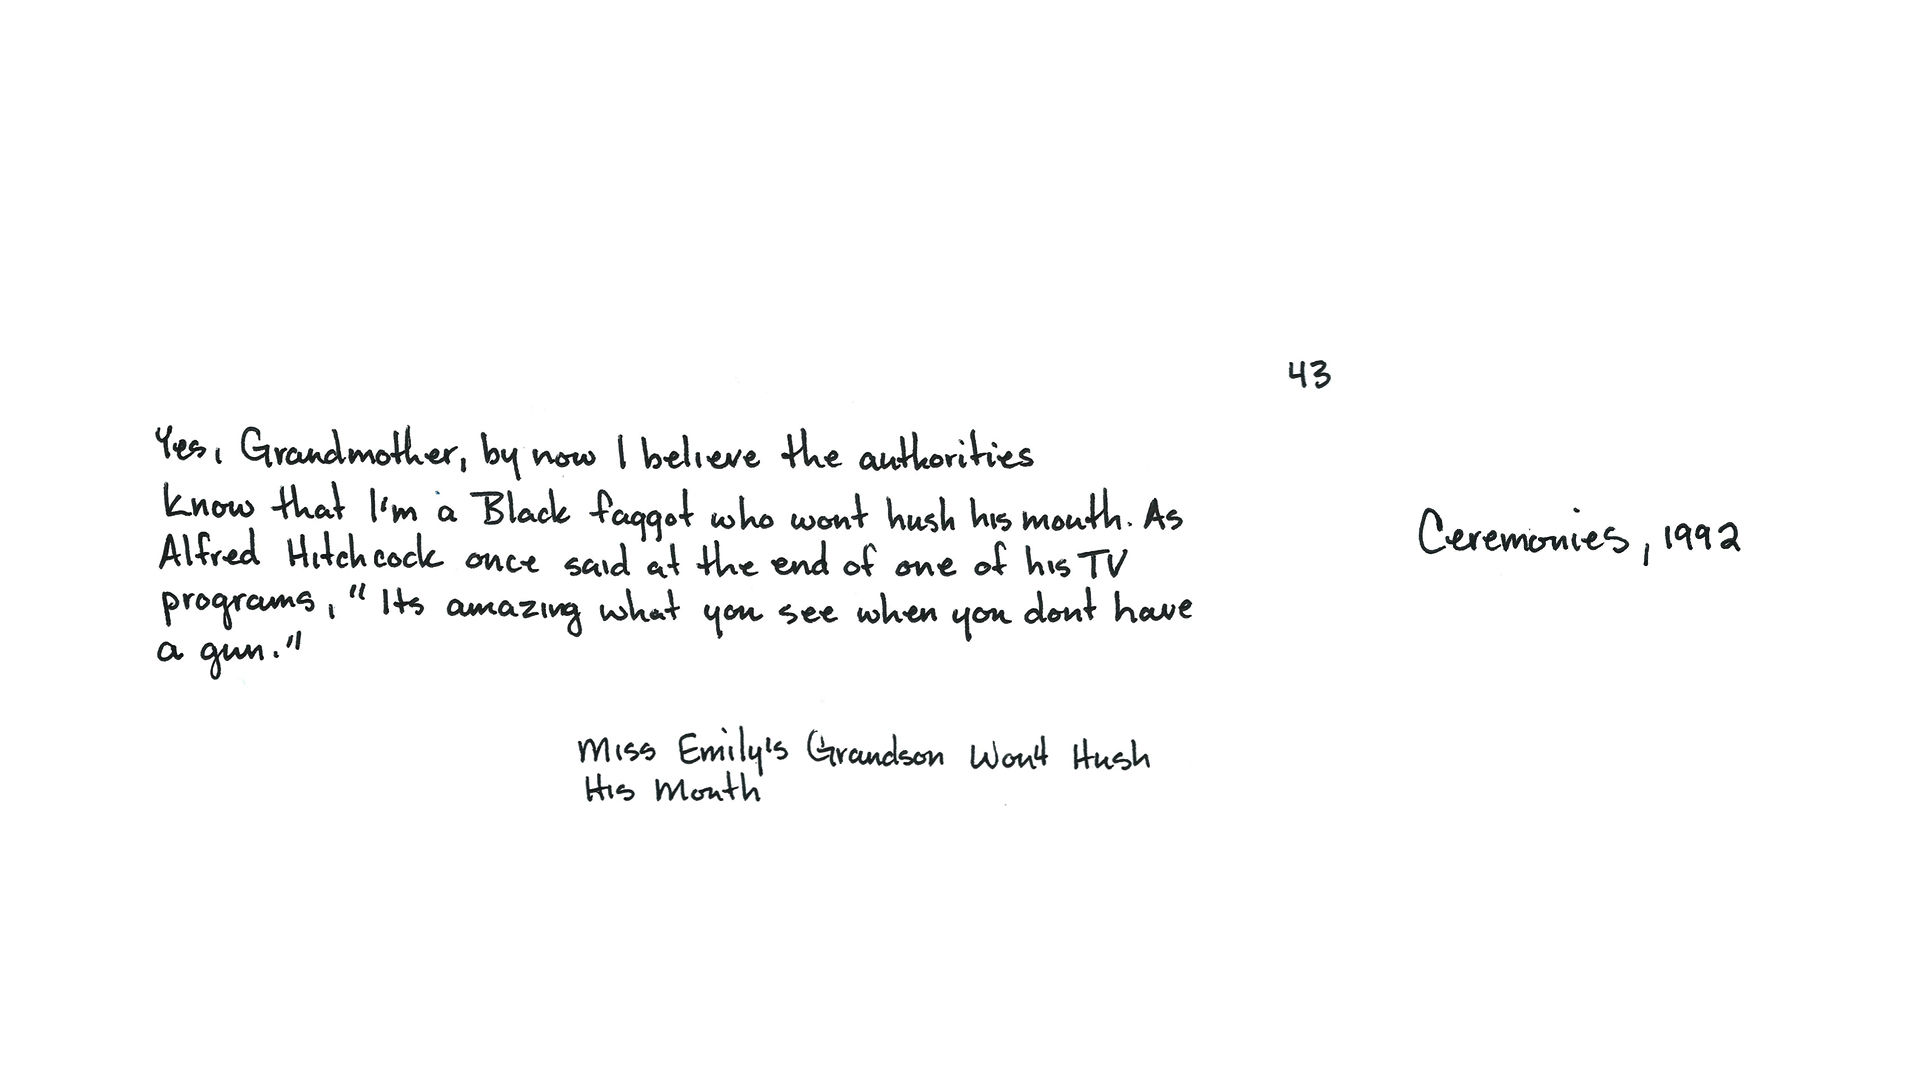 43
Yes, Grandmother, by now I believe the authorities
know that I'm a Black faggot who wont hush his mouth. As
Alfred Hitchcock once said at the end of one of his TV
programs, "Its amazing what you see when you dont have
a gun."
Ceremonies, 1992
Miss Emily's Grandson Won't Hush
His Mouth